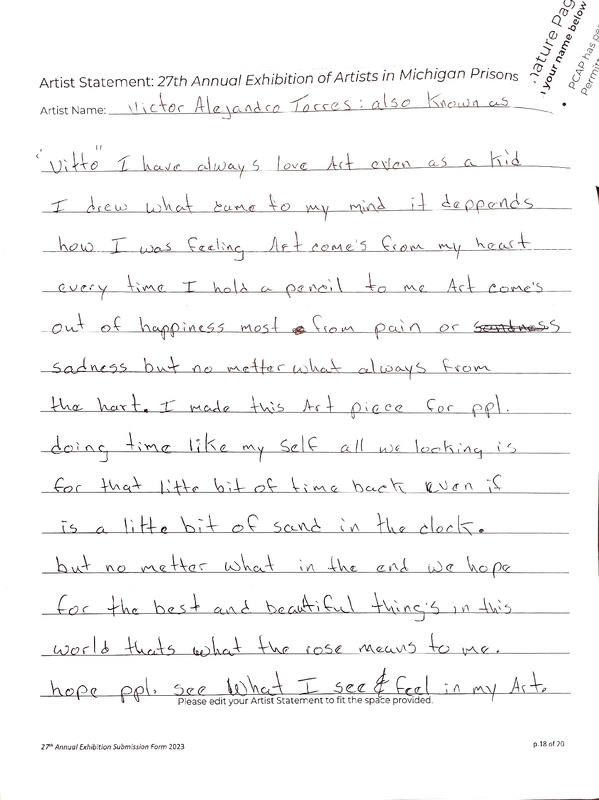 nature Pag
your name below
PCAP has pe
Permitt
Artist Statement: 27th Annual Exhibition of Artists in Michigan Prisons
Artist Name: Victor Alejandro Torres: also Known as
"Vitto" I have always love Art even as a Kid
I drew what came to my mind it deppends
how I was feeling Art come's from my heart
every time I hold a pencil to me Art come's
out of happiness most from pain or
sadness but no metter what always from
the hart. I made this Art piece for ppl.
doing time like my self all we looking is
for that litte bit of time back even if
is a litte bit of sand in the clock.
but no metter what in the end we hope
for the best and beautiful thing's in this
world thats what the rose means to me.
hope ppl. see What I see & feel in my Art.
Please edit your Artist Statement to fit the space provided.
27th Annual Exhibition Submission Form 2023
p.18 of 20